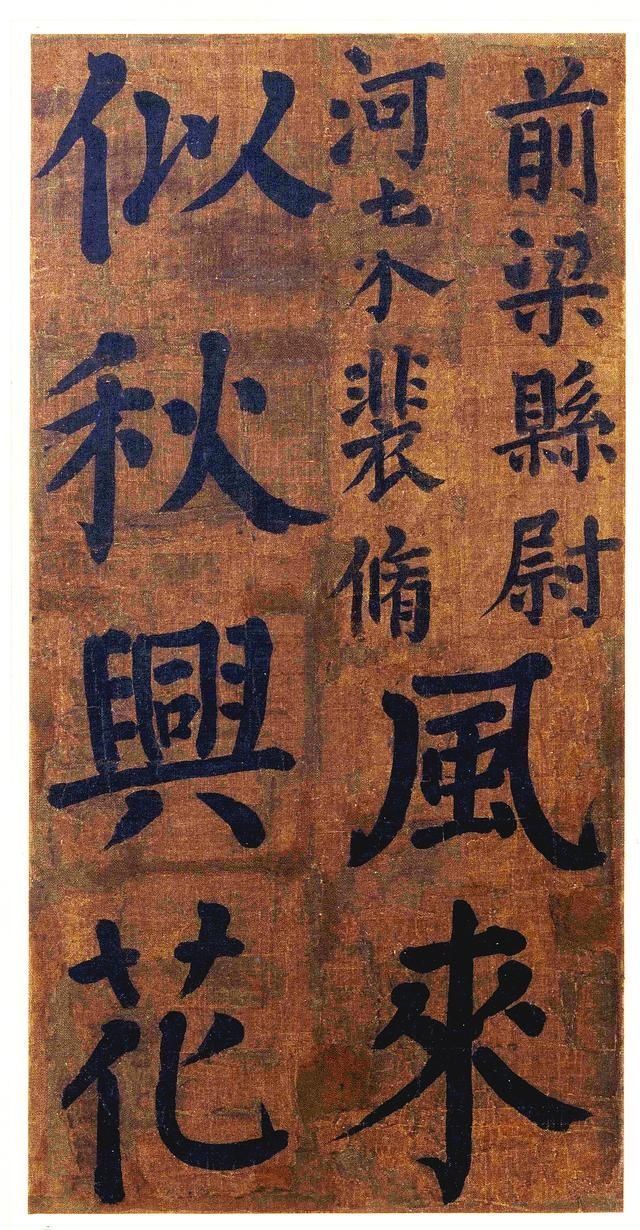 前梁縣尉
河七裴脩
風來
似秋興花